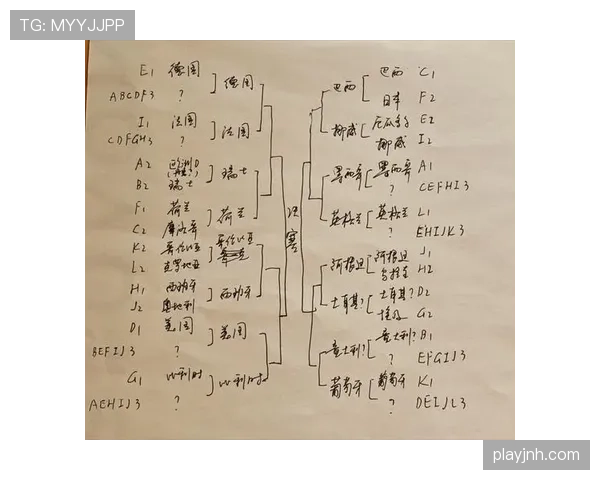 TG: MYYJJPP
E1 德国
ABCDF3 ?
德国
I1 法国
CDFGH3 ?
法国
A2 欧洲D
B2 瑞士
瑞士
F1 荷兰
C2 摩洛哥
荷兰
K2 哥伦比亚
L2 克罗地亚
哥伦比亚
H1 西班牙
J2 奥地利
西班牙
D1 美国
BEFIJ3 ?
美国
G1 比利时
AEHIJ3 ?
比利时
决赛
巴西
巴西 C1
日本 F2
挪威
厄瓜多尔 E2
挪威 I2
墨西哥
墨西哥 A1
? CEFHI3
英格兰
英格兰 L1
? EHIJK3
阿根廷
阿根廷 J1
乌拉圭 H2
土耳其?
土耳其? D2
埃及 G2
意大利?
意大利? B1
? EFGIJ3
葡萄牙
葡萄牙 K1
? DEIJL3
playjnh.com